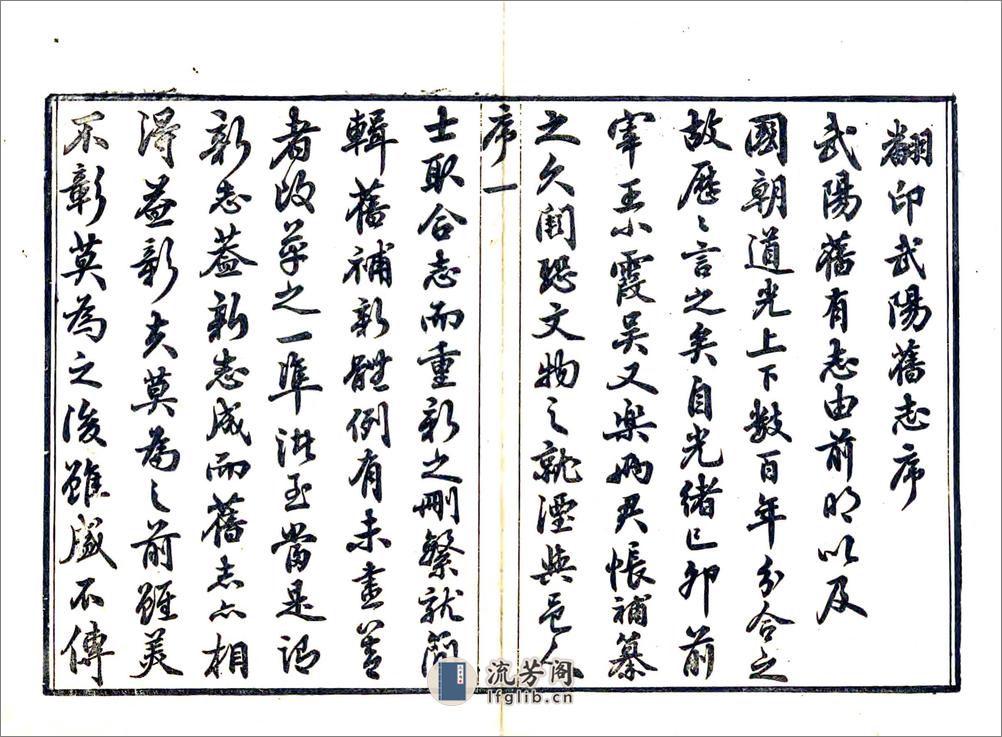 翻印武陽舊志序
武陽舊有志由前明以及
國朝道光上下數百年分合之
故歷〻言之矣自光緒己卯前
宰王小霞吳又樂兩君悵補纂
之久闕恐文物之就湮與邑人
序一
士取合志而重新之刪繁就簡
輯舊補新體例有未盡善
者改革之一準諸至當是謂
新志蓋新志成而舊志亦相
得益彰夫莫為之前雖美
不彰莫為之後雖盛不傳
流芳阁
lfglib.cn